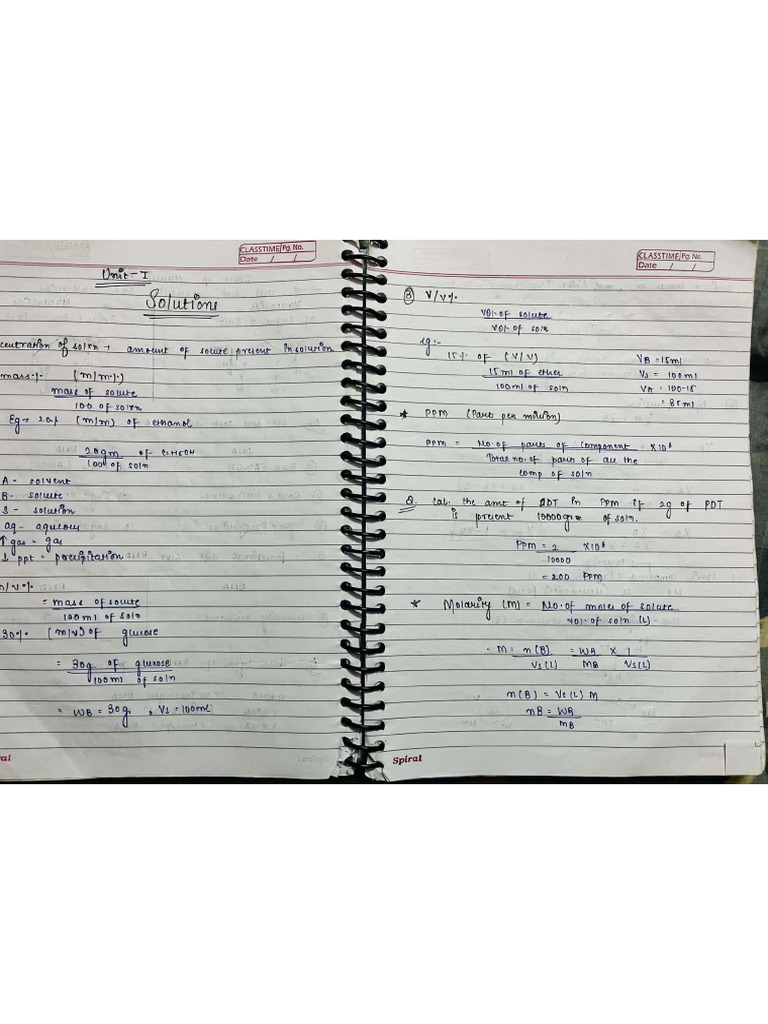 CLASSTIME Pg. No.
Date / /
Unit - I
Solutions
centration of solxn → amount of solute present in solution
mass % (m/m %)
mass of solute
100 of solxn
Eg → 20% (m/m) of ethanol
20gm of C2H5OH
100 of soln
A - solvent
B - solute
S - solution
aq - aqueous
↑ gas - gas
↓ ppt = porecipitation
m/v %
= mass of solute
100ml of soln
30% (m/v) of glucose
= 30g of glucose
100ml of soln
= WB = 30g, VS = 100mL
Spiral
CLASSTIME Pg. No.
Date / /
③ V/V %
vol. of solute
vol. of soln
eg:-
15% of (V/V) VB = 15ml
15ml of ether VS = 100ml
100ml of soln VA = 100-15
= 85ml
* PPM (Parts per million)
PPM = No. of parts of component × 10⁶
Total no. of parts of all the
comp of soln
Q. Cal. the amt of DDT in PPM if 2g of DDT
is present 10000gm of soln.
PPM = 2 × 10⁶
10000
= 200 PPM
* Molarity (M) = No. of moles of solute
vol. of soln (L)
∴ M = n(B) = WB × 1
VS(L) MB VS(L)
n(B) = VS(L) M
nB = WB
mB
Spiral